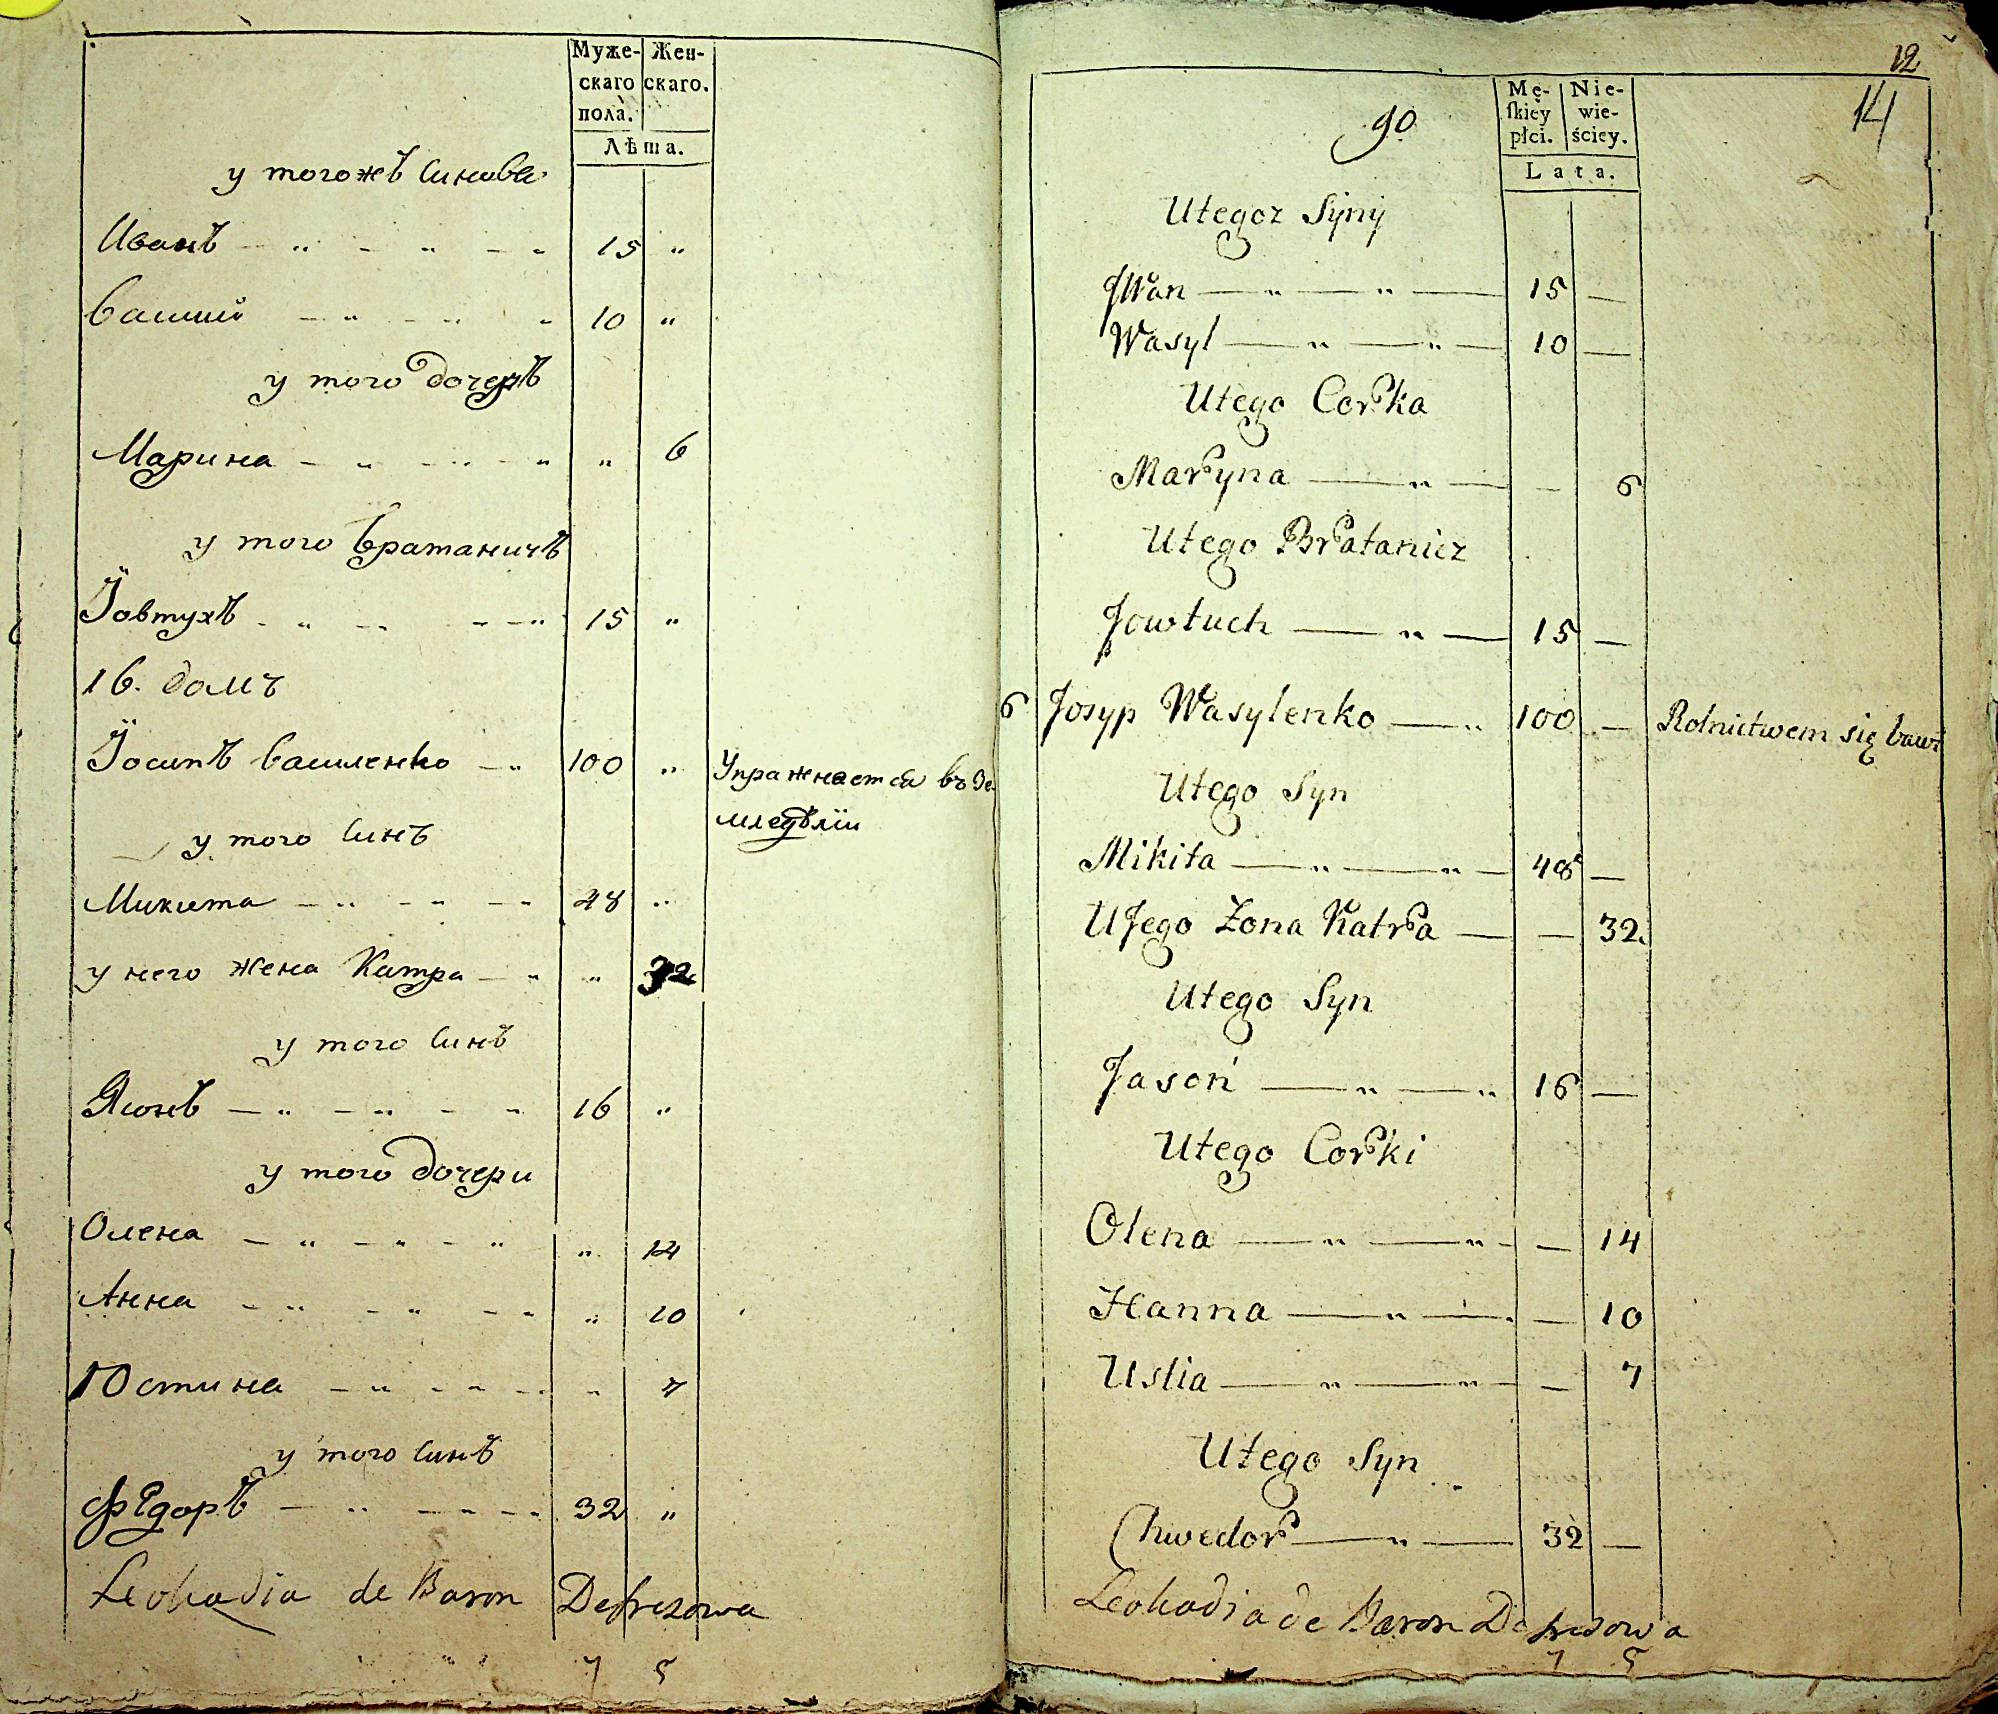 Муже-
скаго
пола.
Жен-
скаго.
Лѣта.
у тогожъ синове
Иванъ — „ — „ — — 15 „
Василий — „ — „ — 10 „
у того дочеръ
Марина — „ — „ — „ „ 6
у того братаничъ
Їовтухъ — „ — — „ 15 „
16. домъ
Їосипъ Василенко — „ 100 „ Упражнается въ зе
мледѣлїи
у того синъ
Микита — „ — „ — „ 48 „
у него жена Катра — „ „ 32
у того синъ
Ясонъ — „ — „ — „ 16 „
у того дочери
Олена — „ — „ — „ „ 14
Анна — „ — „ — — „ 10
Юстина — „ — „ — „ 7
у того синъ
Федоръ — „ — — — 32 „
Leokadia de Baron Defrezowa
7 5
12
14
90
Mę-
ſkiey
płci.
Nie-
wie-
ściey.
Lata.
Utegoz Syny
Jwan — „ — „ — 15 —
Wasyl — „ — „ — 10 —
Utego Corka
Maryna — „ — — 6
Utego Bratanicz
Jowtuch — „ — 15 —
6 Josyp Wasylenko — „ 100 — Rolnictwem się bawi
Utego Syn
Mikita — „ — „ — 48 —
UJego Zona Katra — — 32.
Utego Syn
Jasoń — „ — „ 16 —
Utego Corki
Olena — „ — „ - — 14
Hanna — „ — . — 10
Ustia — „ — „ — — 7
Utego Syn
Chwedor — „ — 32 —
Leokadia de Baron Defrezowa
7 5